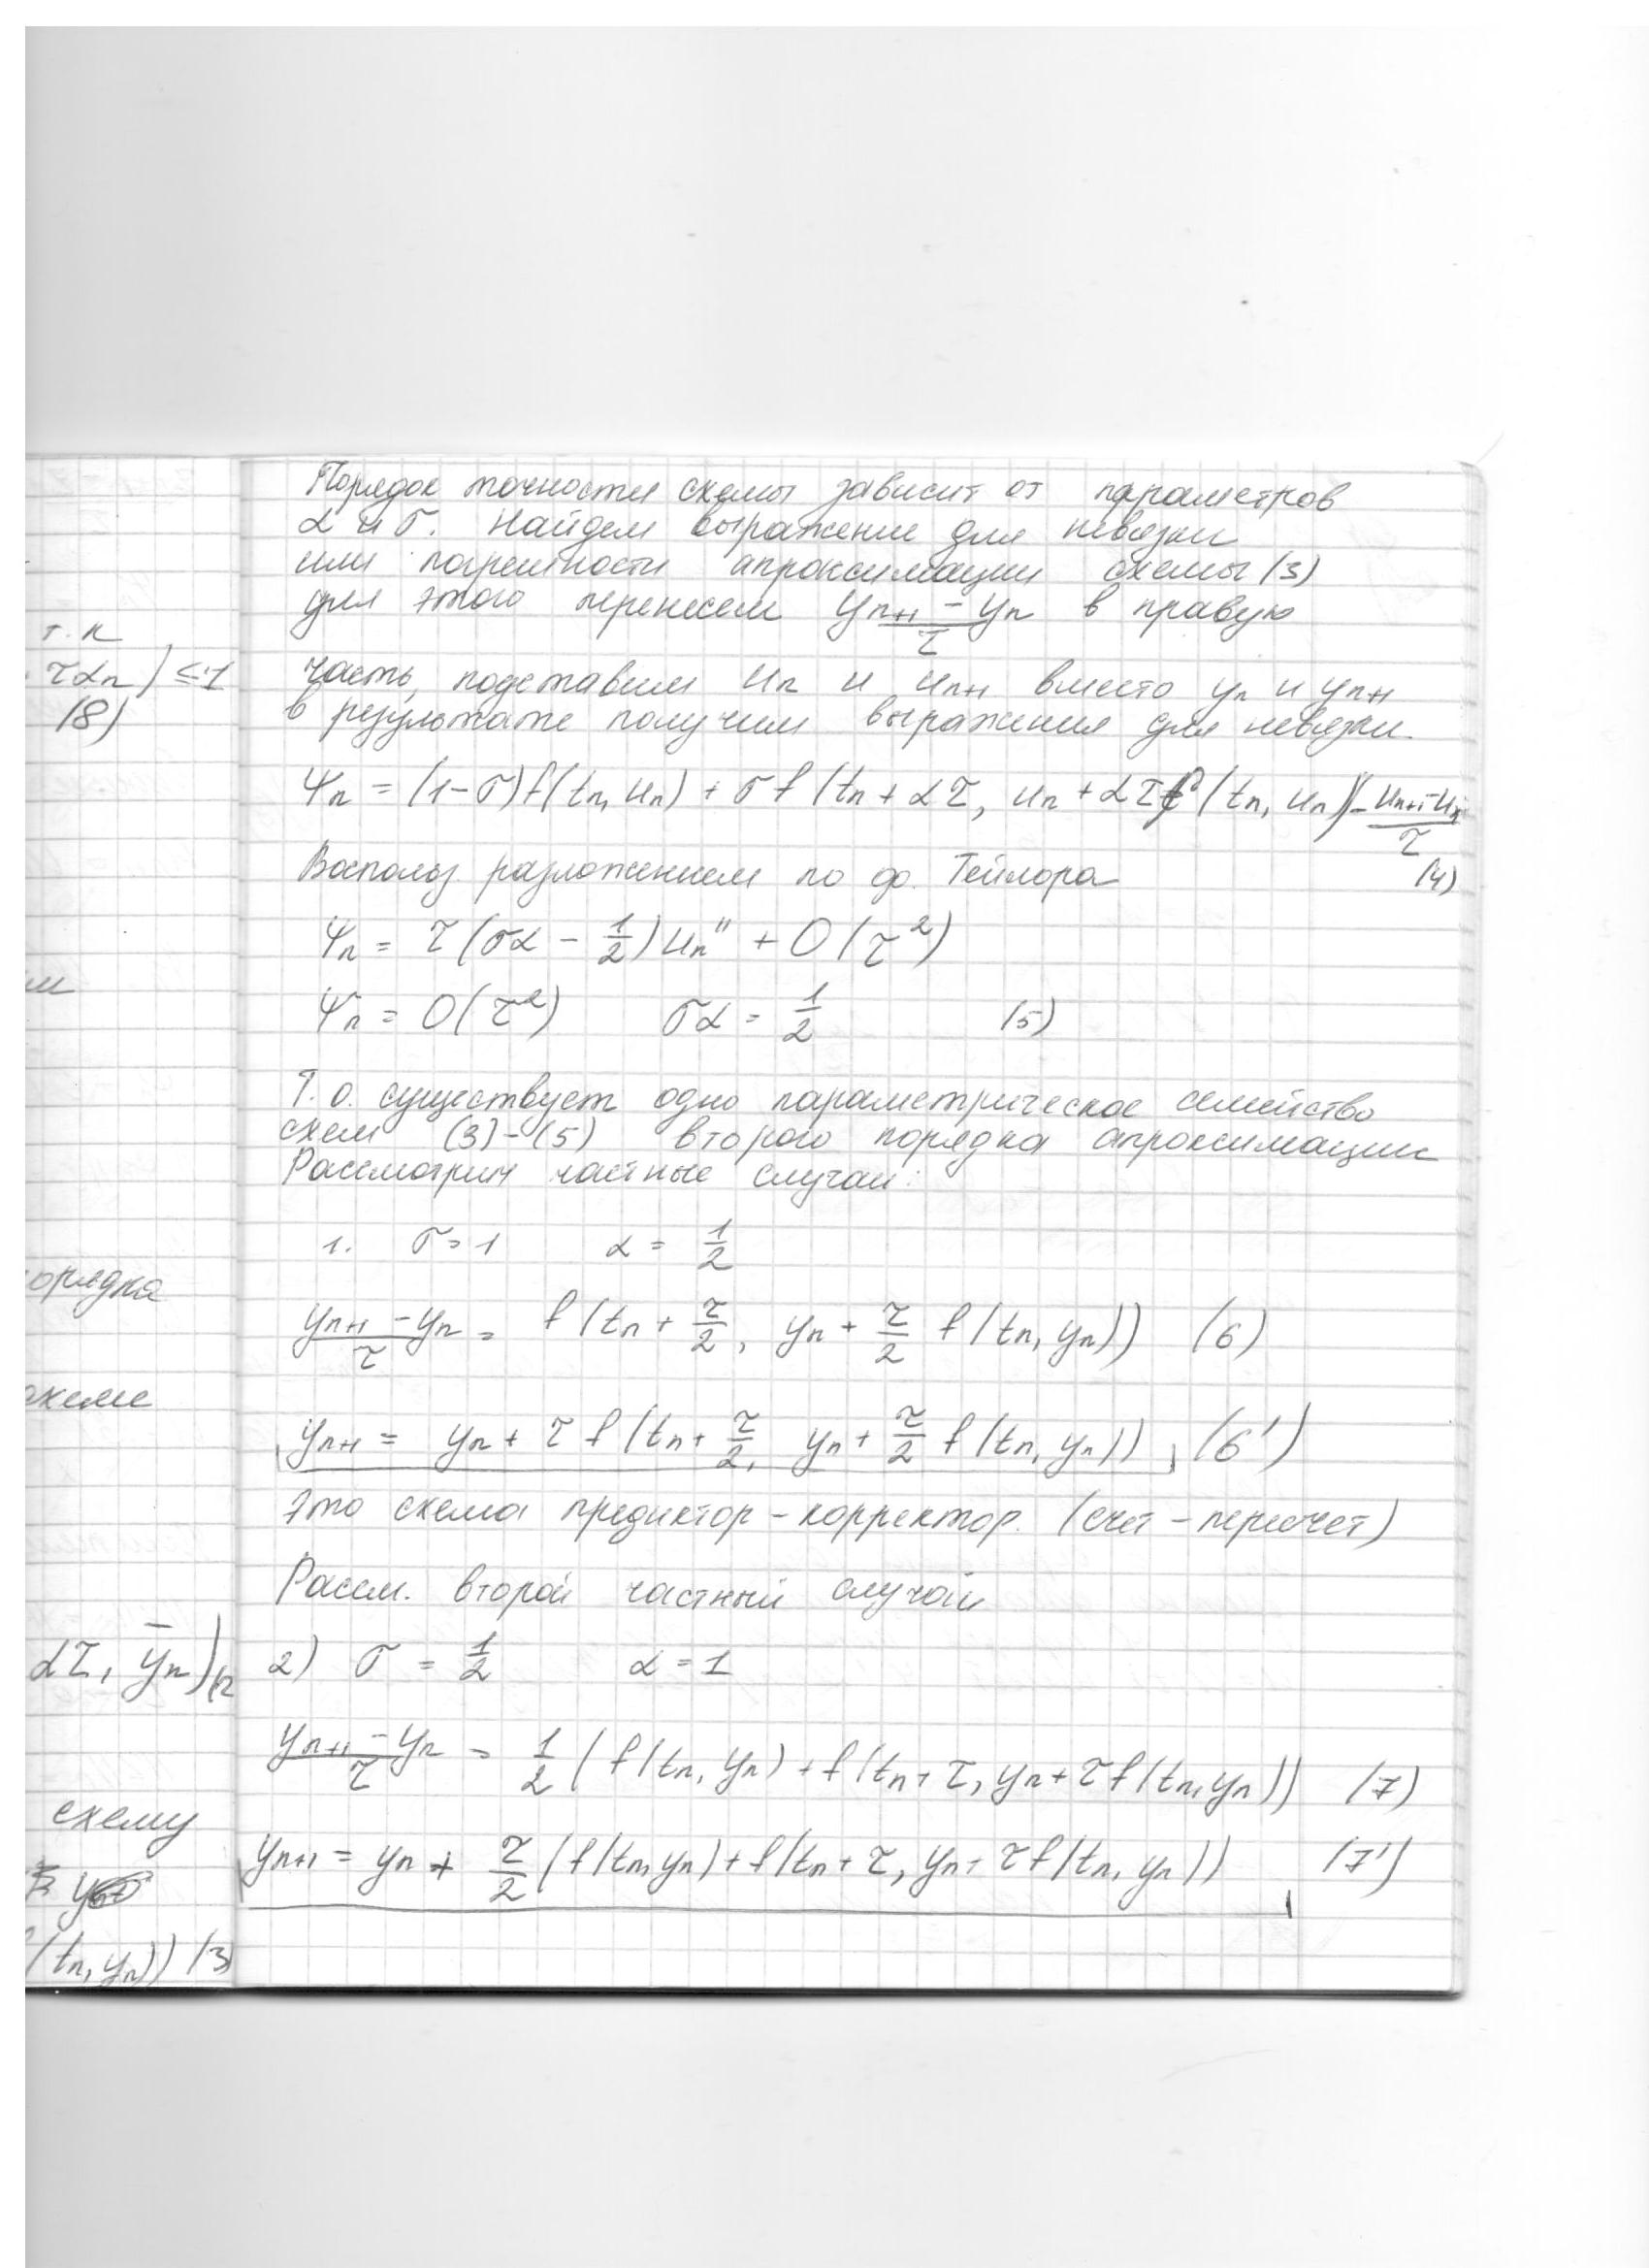 т. к
ταn) ≤ 1
(8)
орядка
схеме
ατ, ȳn)
схему
(tn, yn)) (3)
Порядок точности схемы зависит от параметров
α и σ. Найдем выражение для невязки
или погрешности апроксимации схемы (3)
для этого перенесем (yn+1 - yn)/τ в правую
часть, подставим un и un+1 вместо yn и yn+1
в результате получим выражения для невязки.
Ψn = (1-σ)f(tn, un) + σf(tn + ατ, un + ατf(tn, un)) - (un+1 - un)/τ
(4)
Воспольз. разложением по ф. Тейлора
Ψn = τ(σα - 1/2)un'' + O(τ²)
Ψn = O(τ²) σα = 1/2 (5)
Т. о. существует одно параметрическое семейство
схем (3)-(5) второго порядка апроксимации
Рассмотрим частные случаи:
1. σ = 1 α = 1/2
(yn+1 - yn)/τ = f(tn + τ/2, yn + τ/2 f(tn, yn)) (6)
yn+1 = yn + τf(tn + τ/2, yn + τ/2 f(tn, yn)) (6')
Это схема предиктор-корректор. (счет-пересчет)
Рассм. второй частный случай
2) σ = 1/2 α = 1
(yn+1 - yn)/τ = 1/2 (f(tn, yn) + f(tn + τ, yn + τf(tn, yn)) (7)
yn+1 = yn + τ/2 (f(tn, yn) + f(tn + τ, yn + τf(tn, yn)) (7')